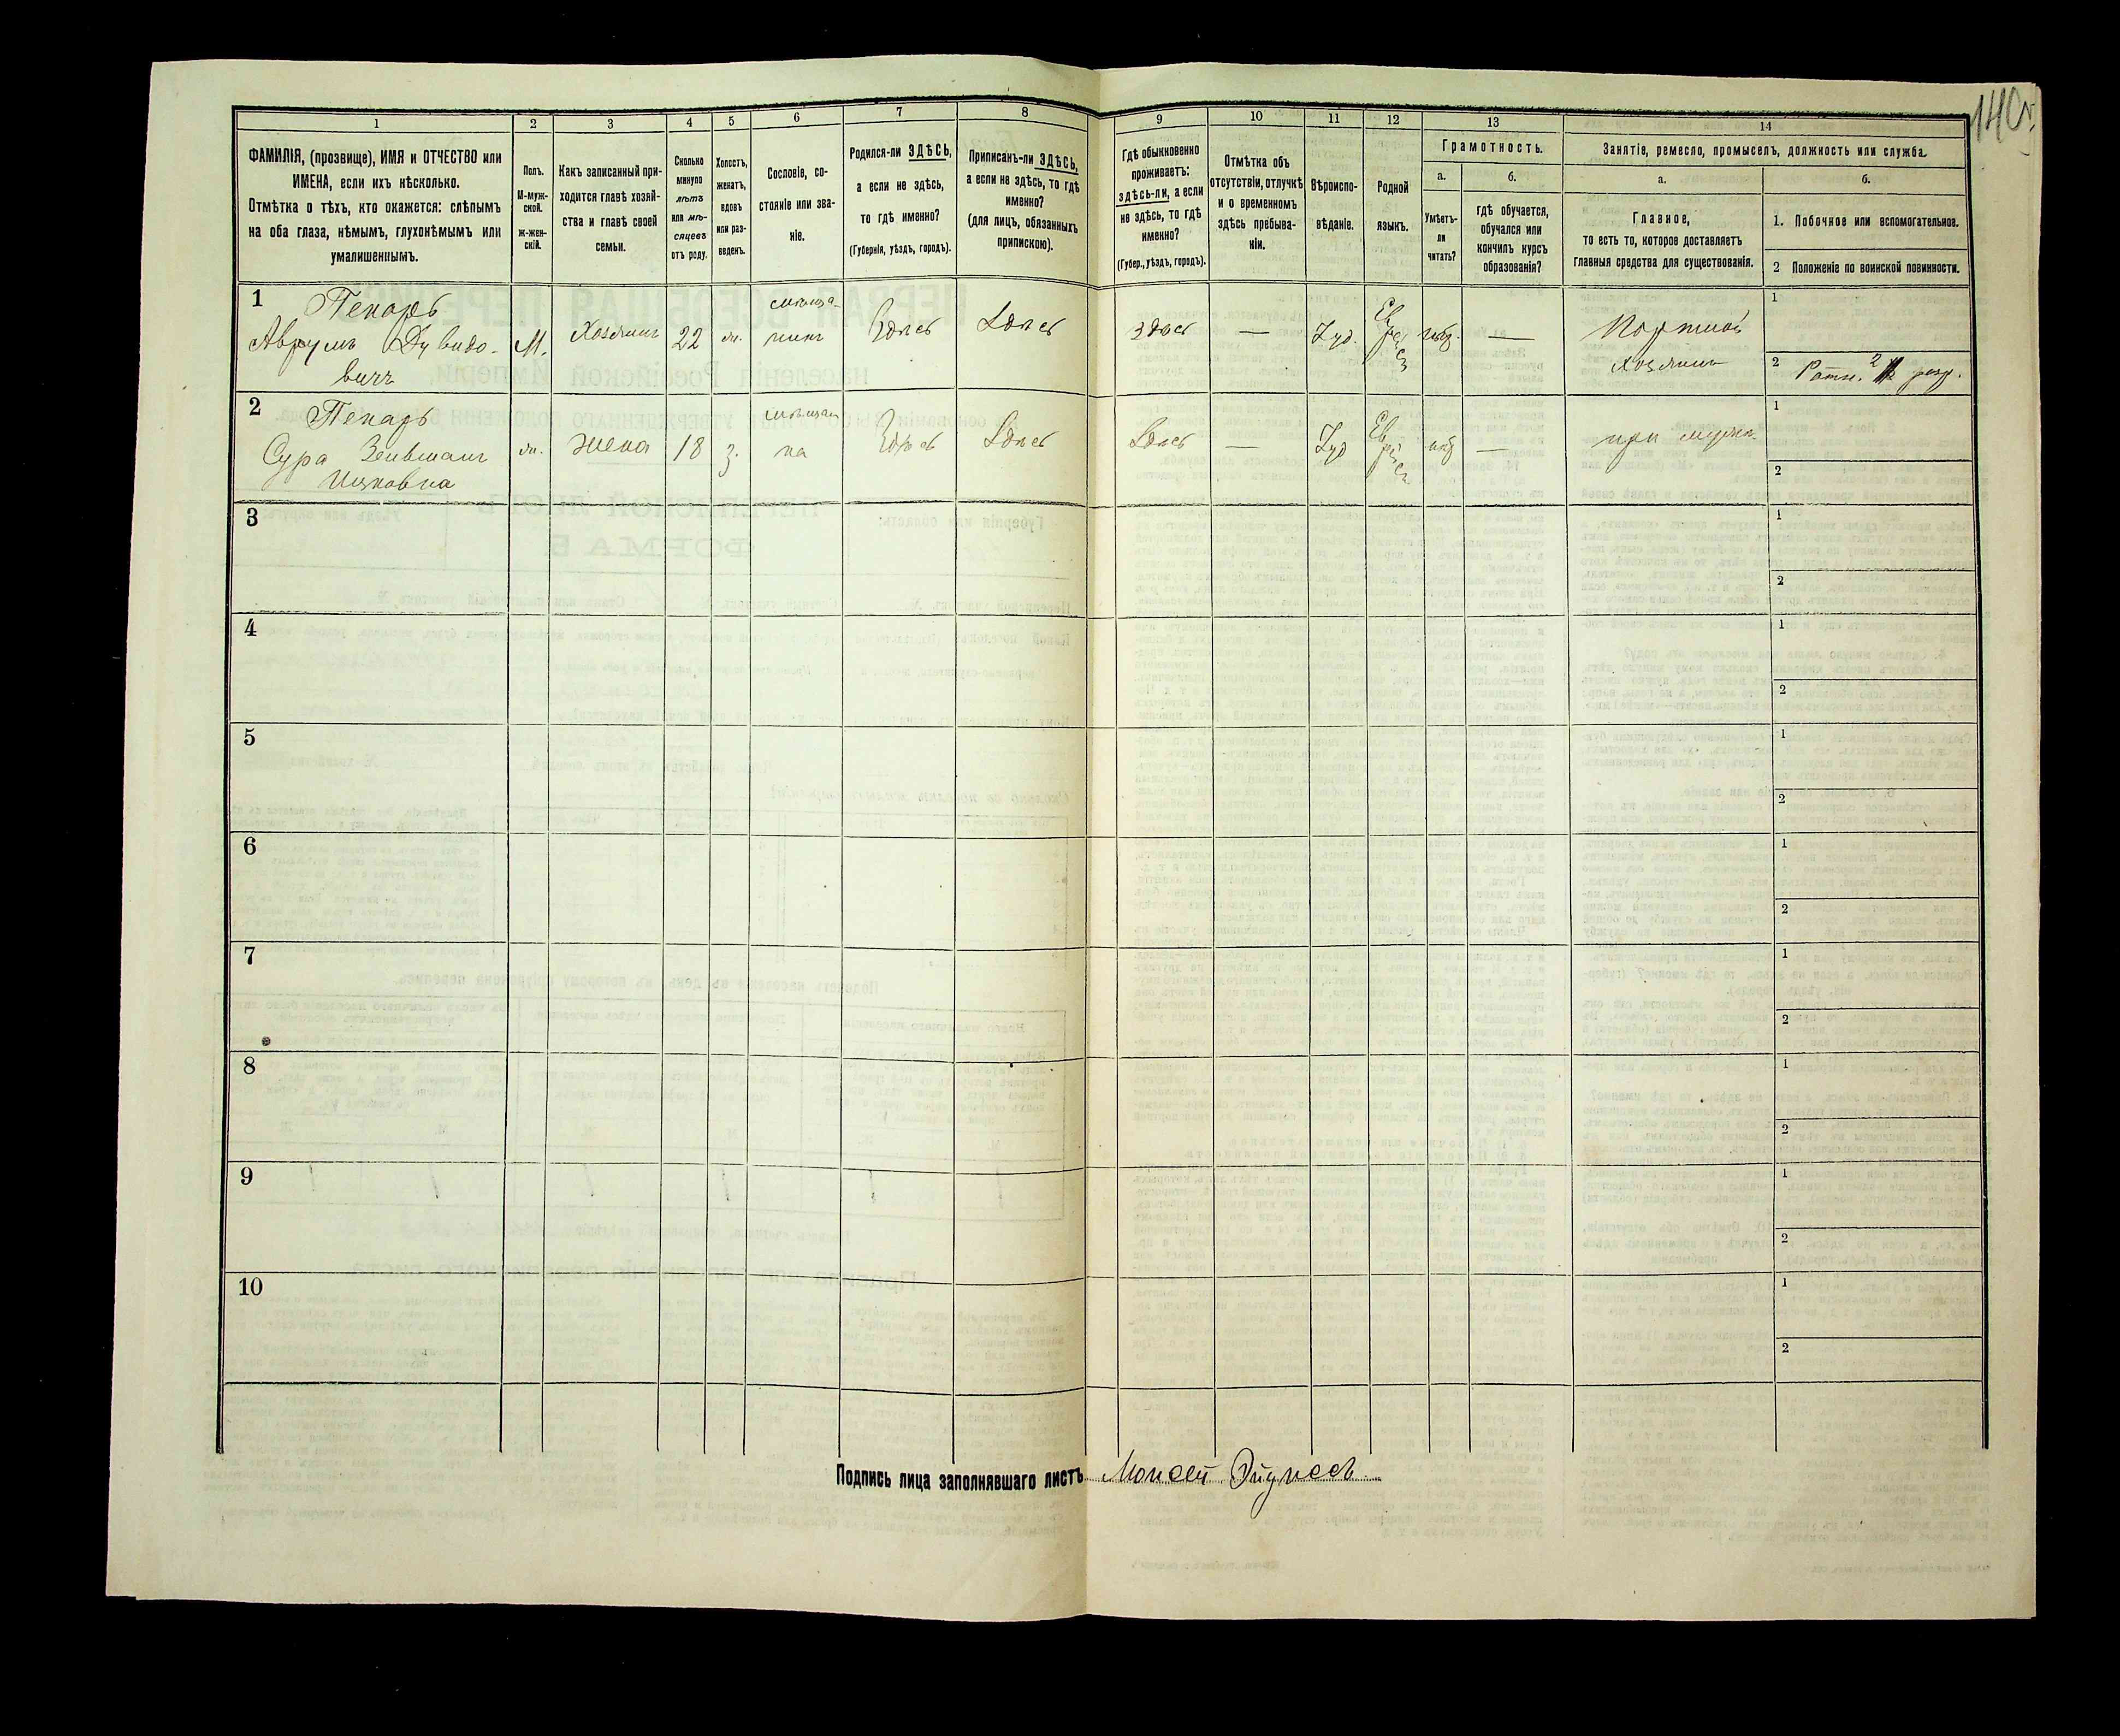 140
1
2
3
4
5
6
7
8
9
10
11
12
13
14
ФАМИЛІЯ, (прозвище), ИМЯ и ОТЧЕСТВО или
ИМЕНА, если ихъ нѣсколько.
Отмѣтка о тѣхъ, кто окажется: слѣпымъ
на оба глаза, нѣмымъ, глухонѣмымъ или
умалишеннымъ.
Полъ.
М-муж-
ской.
ж-жен-
скій.
Какъ записанный при-
ходится главѣ хозяй-
ства и главѣ своей
семьи.
Сколько
минуло
лѣтъ
или мѣ-
сяцевъ
отъ роду.
Холостъ,
женатъ,
вдовъ
или раз-
веденъ.
Сословіе, со-
стояніе или зва-
ніе.
Родился-ли ЗДѢСЬ,
а если не здѣсь,
то гдѣ именно?
(Губернія, уѣздъ, городъ).
Приписанъ-ли ЗДѢСЬ,
а если не здѣсь, то гдѣ
именно?
(для лицъ, обязанныхъ
припискою).
Гдѣ обыкновенно
проживаетъ:
здѣсь-ли, а если
не здѣсь, то гдѣ
именно?
(Губер., уѣздъ, городъ).
Отмѣтка объ
отсутствіи, отлучкѣ
и о временномъ
здѣсь пребыва-
ніи.
Вѣроиспо-
вѣданіе.
Родной
языкъ.
Грамотность.
а.
б.
Умѣетъ-
ли
читать?
гдѣ обучается,
обучался или
кончилъ курсъ
образованія?
Занятіе, ремесло, промыселъ, должность или служба.
а.
б.
Главное,
то есть то, которое доставляетъ
главныя средства для существованія.
1. Побочное или вспомогательное.
2 Положеніе по воинской повинности.
1 Пекарь
Аврумъ Дувидо-
вичъ
М.
Хозяинъ
22
ж.
мѣща-
нинъ
Здѣсь
Здѣсь
здѣсь
—
Іуд.
Ев
рей
ск
—
Портной
хозяинъ
1
2 Ратн. 2 разр.
2 Пекарь
Сура Зейвманъ
Ицковна
ж.
жена
18
з.
мѣщан
ка
Здѣсь
Здѣсь
Здѣсь
—
Іуд
Ев
рей
ск
—
при мужѣ
1
2
3
1
2
4
1
2
5
1
2
6
1
2
7
1
2
8
1
2
9
1
2
10
1
2
Подпись лица заполнявшаго листъ Моисей